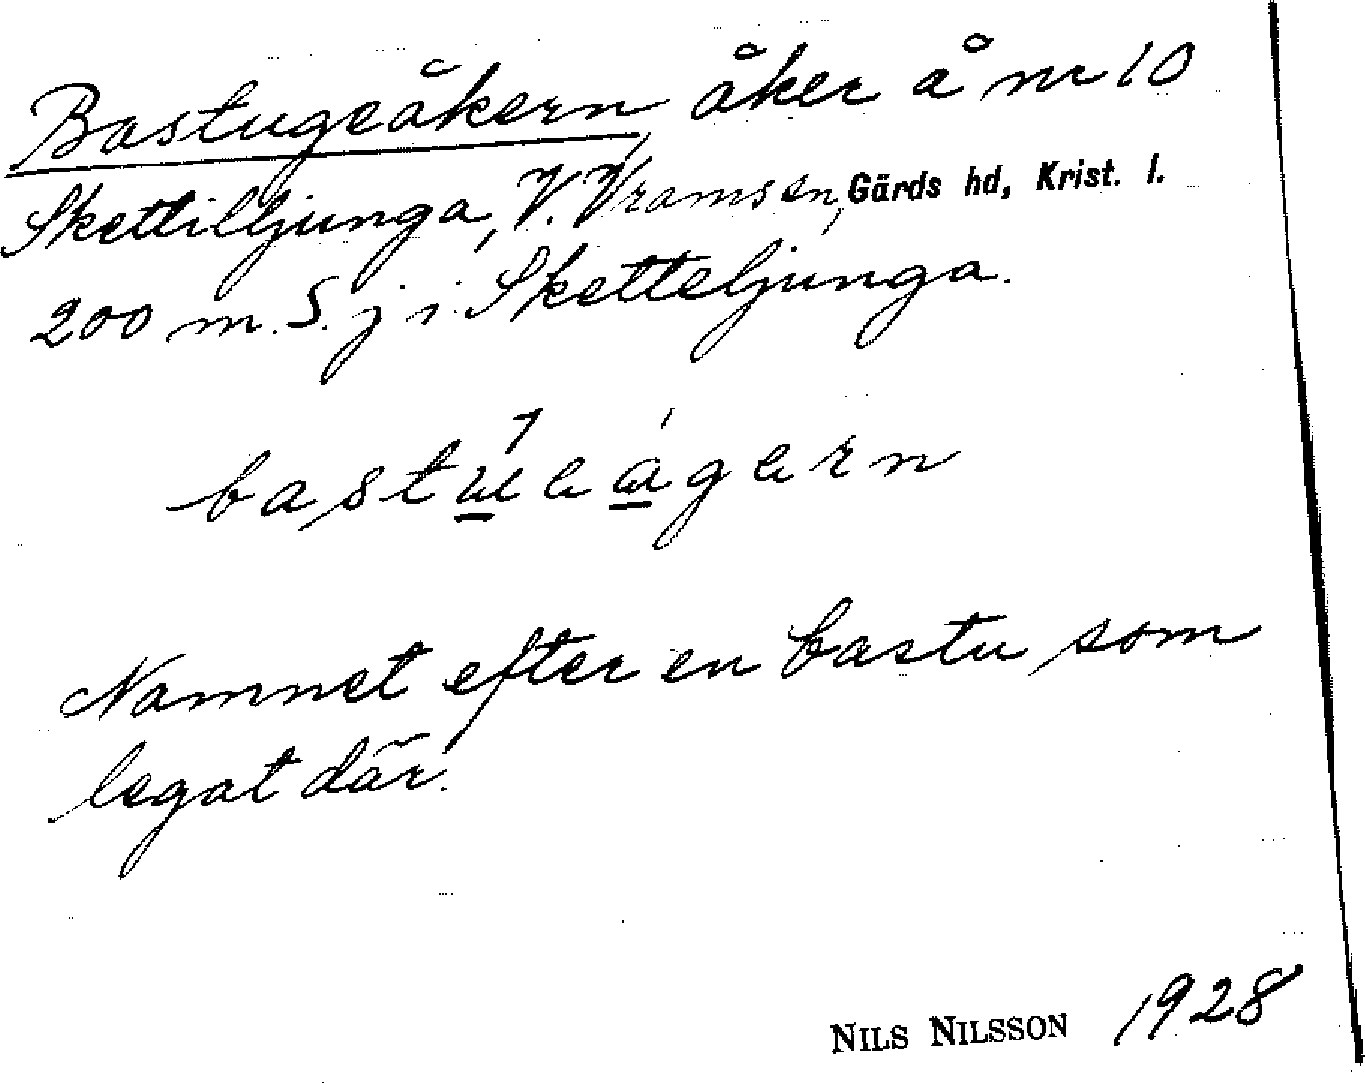 Bastugeåkern, åker å nr 10
Skettilljunga, V. Vramsen, Gärds hd, Krist. l.
200 m. S. j i Sketteljunga.
Namnet efter en bastu som
legat där.
NILS NILSSON 1928